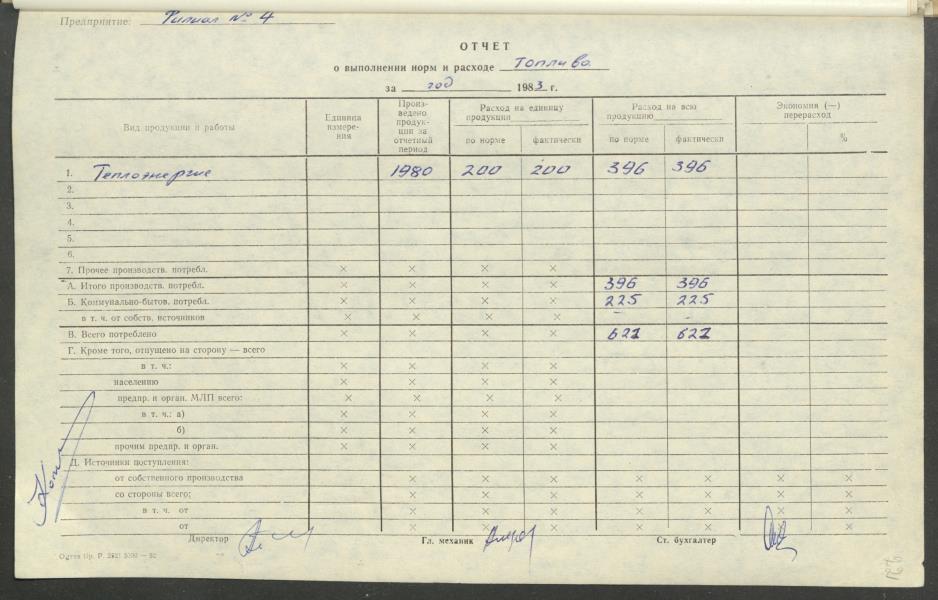 Предприятие: Филиал № 4
ОТЧЕТ
о выполнении норм и расходе топлива
за год 1983 г.
Вид продукции и работы
Единица измере- ния
Произ- ведено продук- ции за отчетный период
Расход на единицу продукции
Расход на всю продукцию
Экономия (—) перерасход
по норме фактически по норме фактически %
1. Теплоэнергие 1980 200 200 396 396
2.
3.
4.
5.
6.
7. Прочее производств. потребл. × × × ×
А. Итого производств. потребл. × × × × 396 396
Б. Коммунально-бытов. потребл. × × × × 225 225
в т. ч. от собств. источников × × × × - -
В. Всего потреблено × × × × 621 621
Г. Кроме того, отпущено на сторону — всего
в т. ч.: × × × ×
населению × × × ×
предпр. и орган. МЛП всего: × × × ×
в т. ч.: а) × × × ×
б) × × × ×
прочим предпр. и орган. × × × ×
Д. Источники поступления:
от собственного производства × × × × × × ×
со стороны всего: × × × × × × ×
в т. ч. от × × × × × × ×
от × × × × × × ×
Директор Гл. механик Ст. бухгалтер